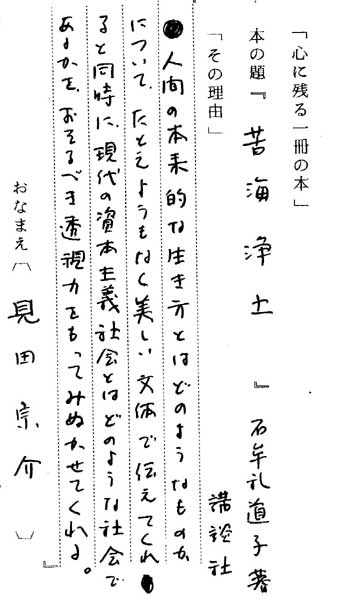 「心に残る一冊の本」
本の題『 苦海浄土 』 石牟礼道子著
講談社
「その理由」
人間の本来的な生き方とはどのようなものか
について、たとえようもなく美しい文体で伝えてくれ
ると同時に、現代の資本主義社会とはどのような社会で
あるかを、おそるべき透視力をもってみぬかせてくれる。
おなまえ〔 見田宗介 〕
』